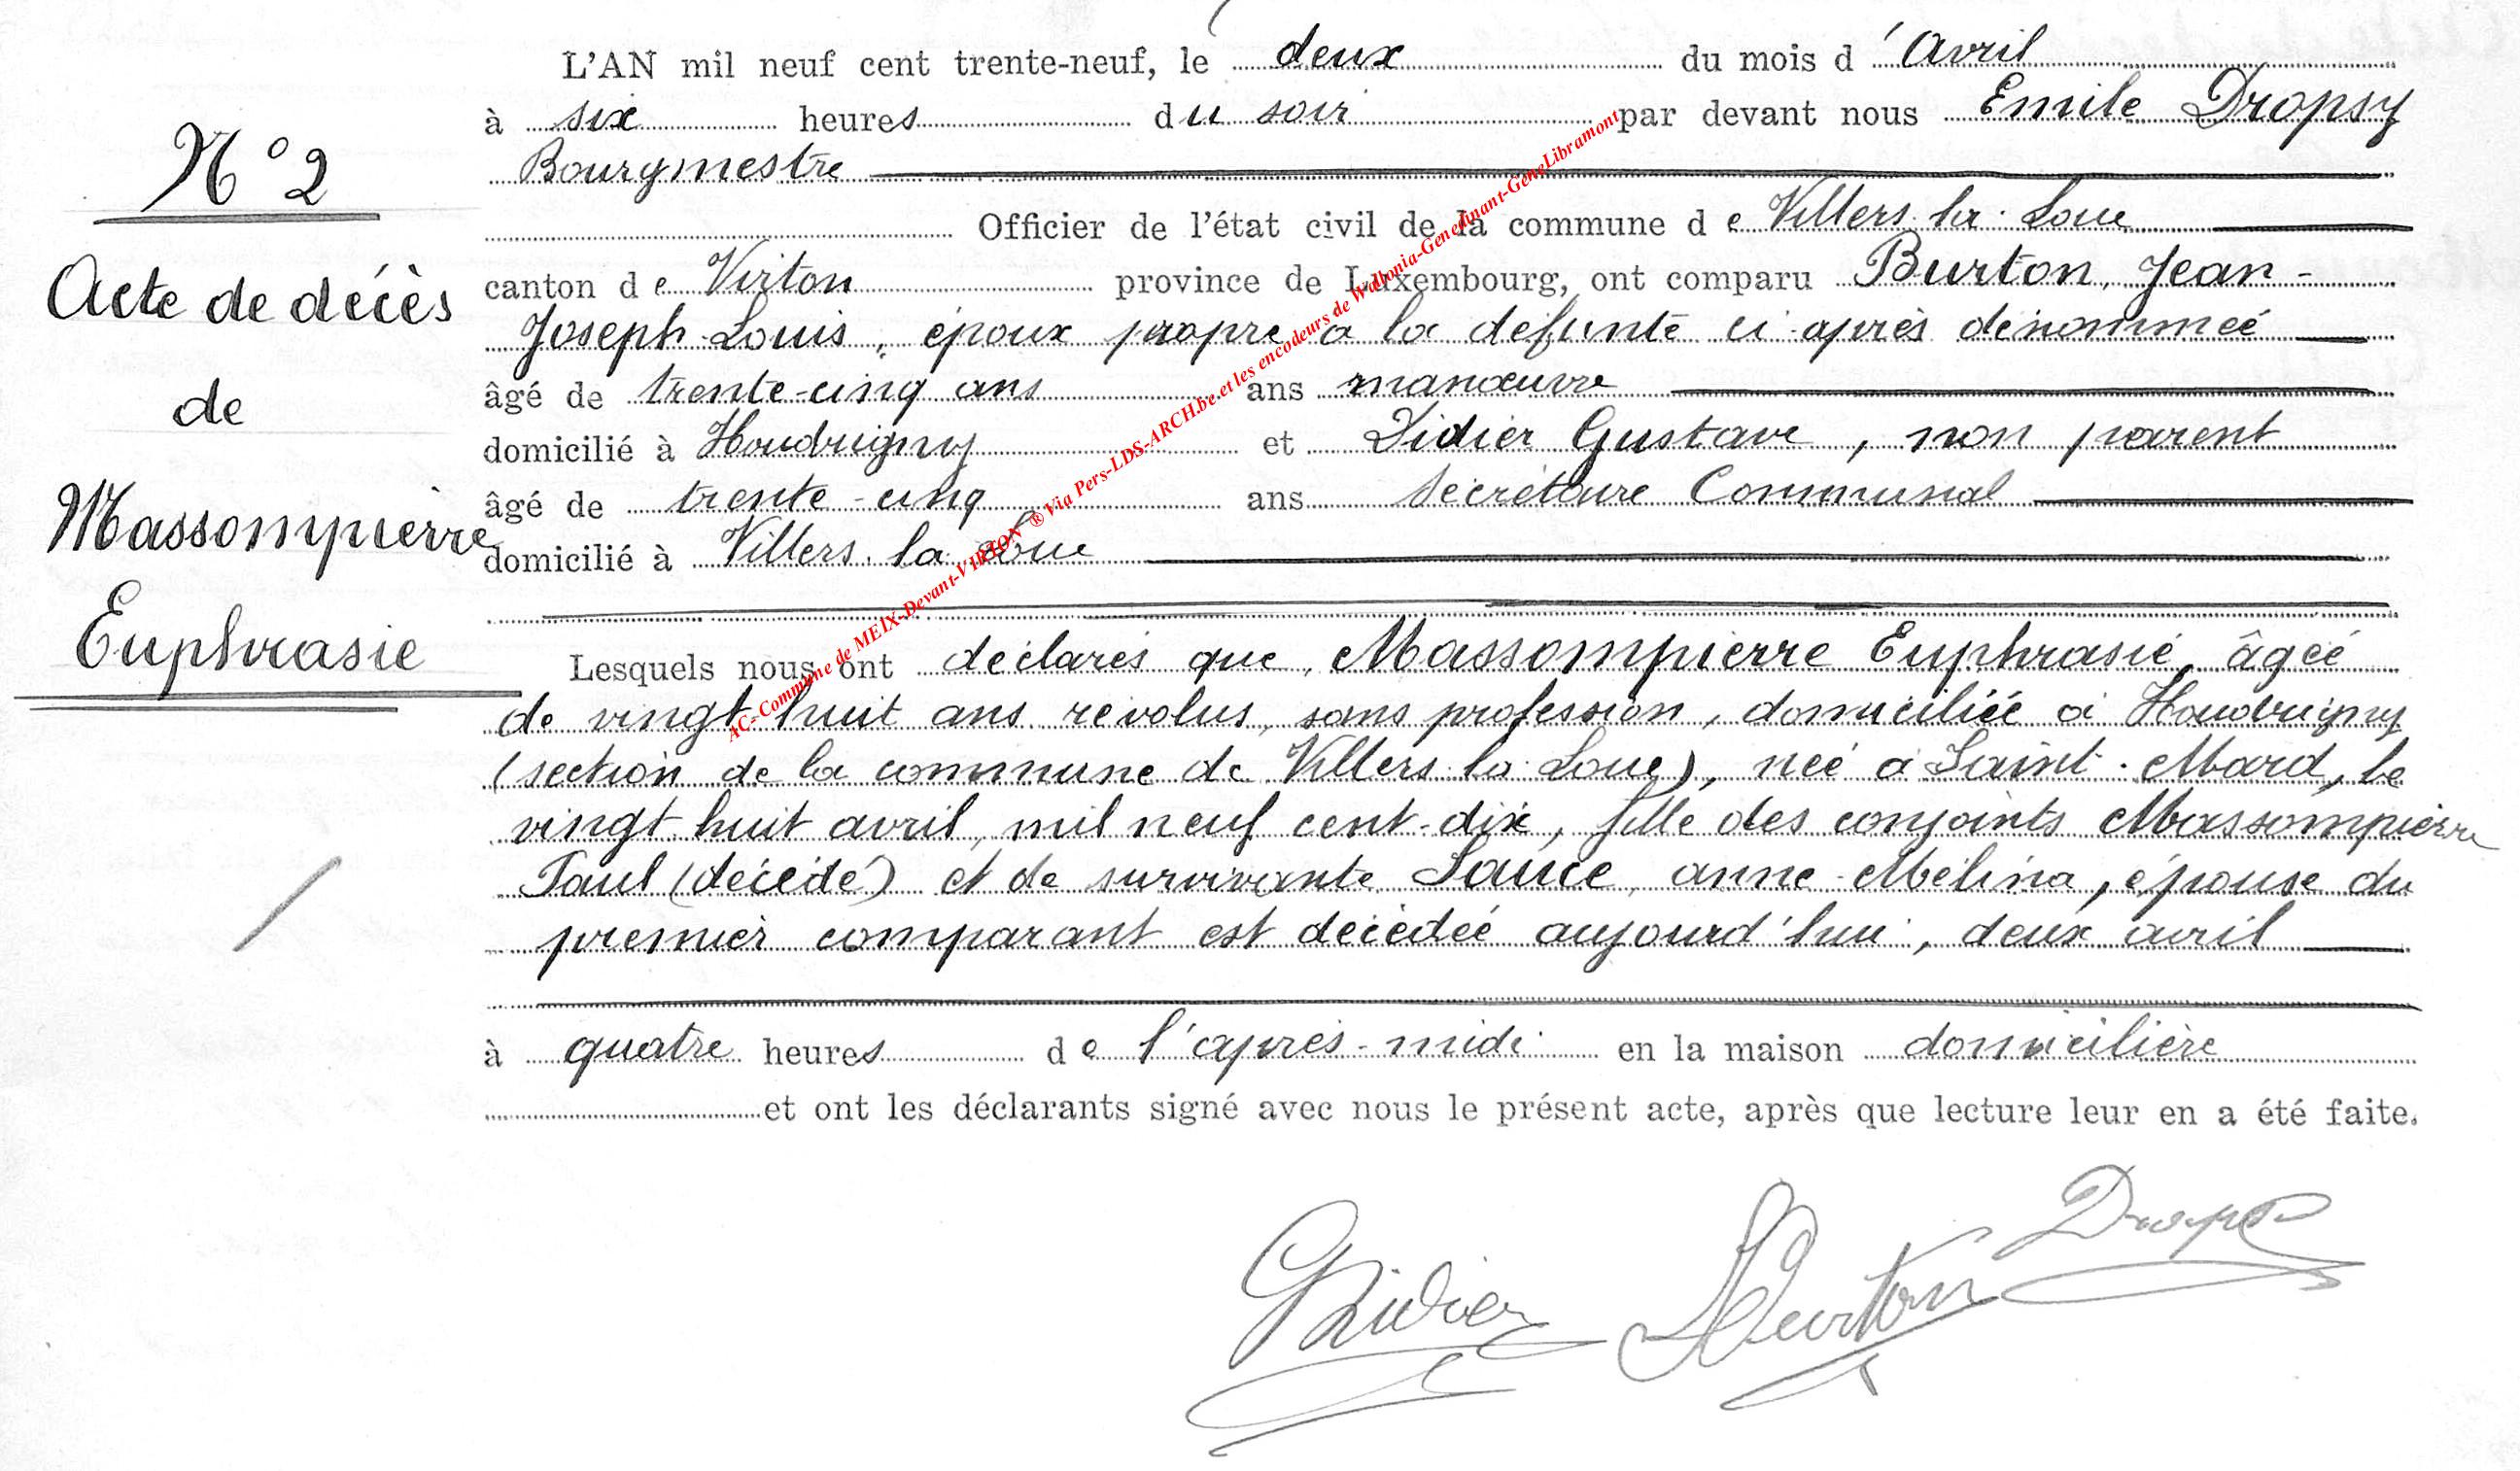 N° 2
Acte de décès
de
Massompierre
Euphrasie
L'AN mil neuf cent trente-neuf, le deux du mois d'Avril
à six heures du soir par devant nous Emile Dropsy
Bourgmestre
Officier de l'état civil de la commune de Villers-la-Loue
canton de Virton province de Luxembourg, ont comparu Burton, Jean-
Joseph-Louis, époux propre à la défunte ci-après dénommée
âgé de trente-cinq ans ans manœuvre
domicilié à Houdrigny et Didier Gustave, non parent
âgé de trente-cinq ans Secrétaire Communal
domicilié à Villers-la-Loue
Lesquels nous ont déclarés que, Massompierre Euphrasie, âgée
de vingt-huit ans révolus, sans profession, domiciliée à Houdrigny
(section de la commune de Villers-la-Loue), née à Saint-Mard, le
vingt-huit avril, mil neuf cent-dix, fille des conjoints Massompierre
Paul (décédé) et de survivante Sauce, anne-Mélina, épouse du
premier comparant est décédée aujourd'hui, deux avril
à quatre heures de l'après-midi en la maison domicilière
et ont les déclarants signé avec nous le présent acte, après que lecture leur en a été faite.
GDidier Burton Dropsy
AC-Commune de MEIX-Devant-VIRTON ® Via Pers-LDS-ARCH.be et les encodeurs de Wallonia-Genedinant-GeneLibramont